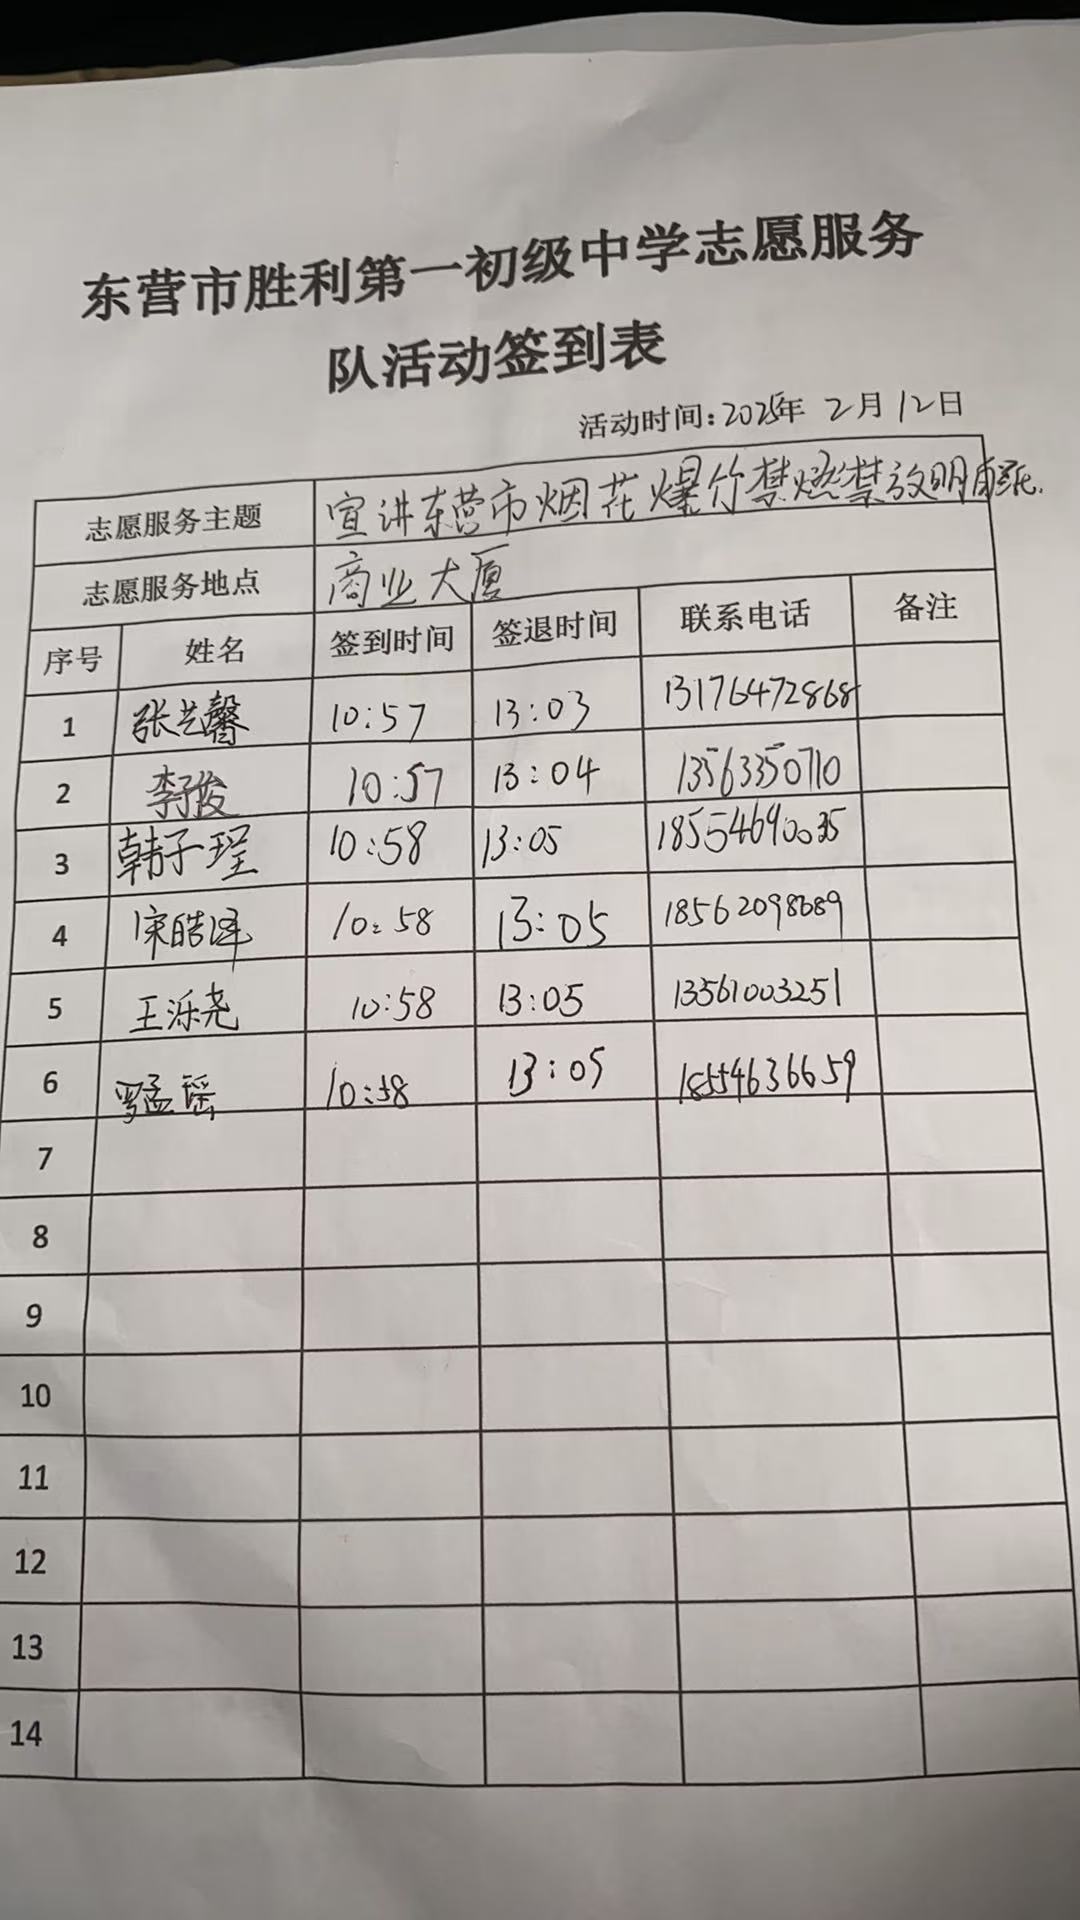 东营市胜利第一初级中学志愿服务
队活动签到表
活动时间：2025年 2月 12日
志愿服务主题 宣讲东营市烟花爆竹禁燃禁放明白纸.
志愿服务地点 商业大厦
序号 姓名 签到时间 签退时间 联系电话 备注
1 张艺馨 10:57 13:03 13176472868
2 李俊 10:57 13:04 13563350710
3 韩子瑆 10:58 13:05 18554690035
4 宋皓泽 10:58 13:05 18562098689
5 王泺尧 10:58 13:05 13561003251
6 罗孟瑶 10:58 13:05 18554636659
7
8
9
10
11
12
13
14